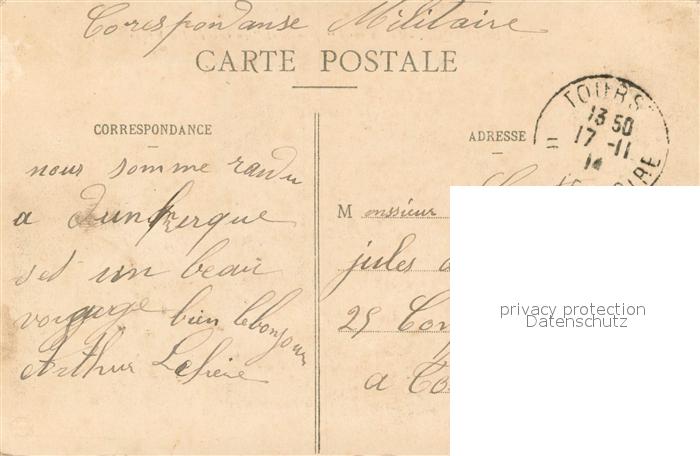 Corespondanse Militaire
CARTE POSTALE
CORRESPONDANCE
nous somme randu
a Dunkerque
set un beau
voyage bien lebonjour
Arthur
ADRESSE
TOURS
13 50
17 -11
14
LOIRE
M onssieur
jules
25
a
privacy protection
Datenschutz